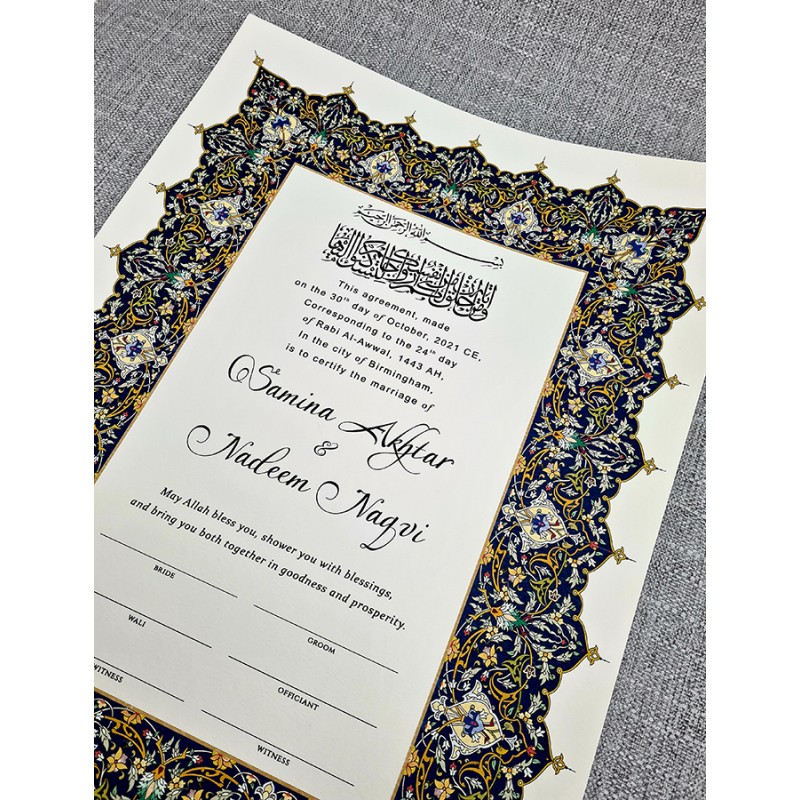 بسم الله الرحمن الرحيم
ومن آياته أن خلق لكم من أنفسكم أزواجا لتسكنوا إليها
This agreement, made
on the 30th day of October, 2021 CE,
Corresponding to the 24th day
of Rabi Al-Awwal, 1443 AH,
In the city of Birmingham,
is to certify the marriage of
Samina Akhtar
&
Nadeem Naqvi
May Allah bless you, shower you with blessings,
and bring you both together in goodness and prosperity.
BRIDE
GROOM
WALI
OFFICIANT
WITNESS
WITNESS